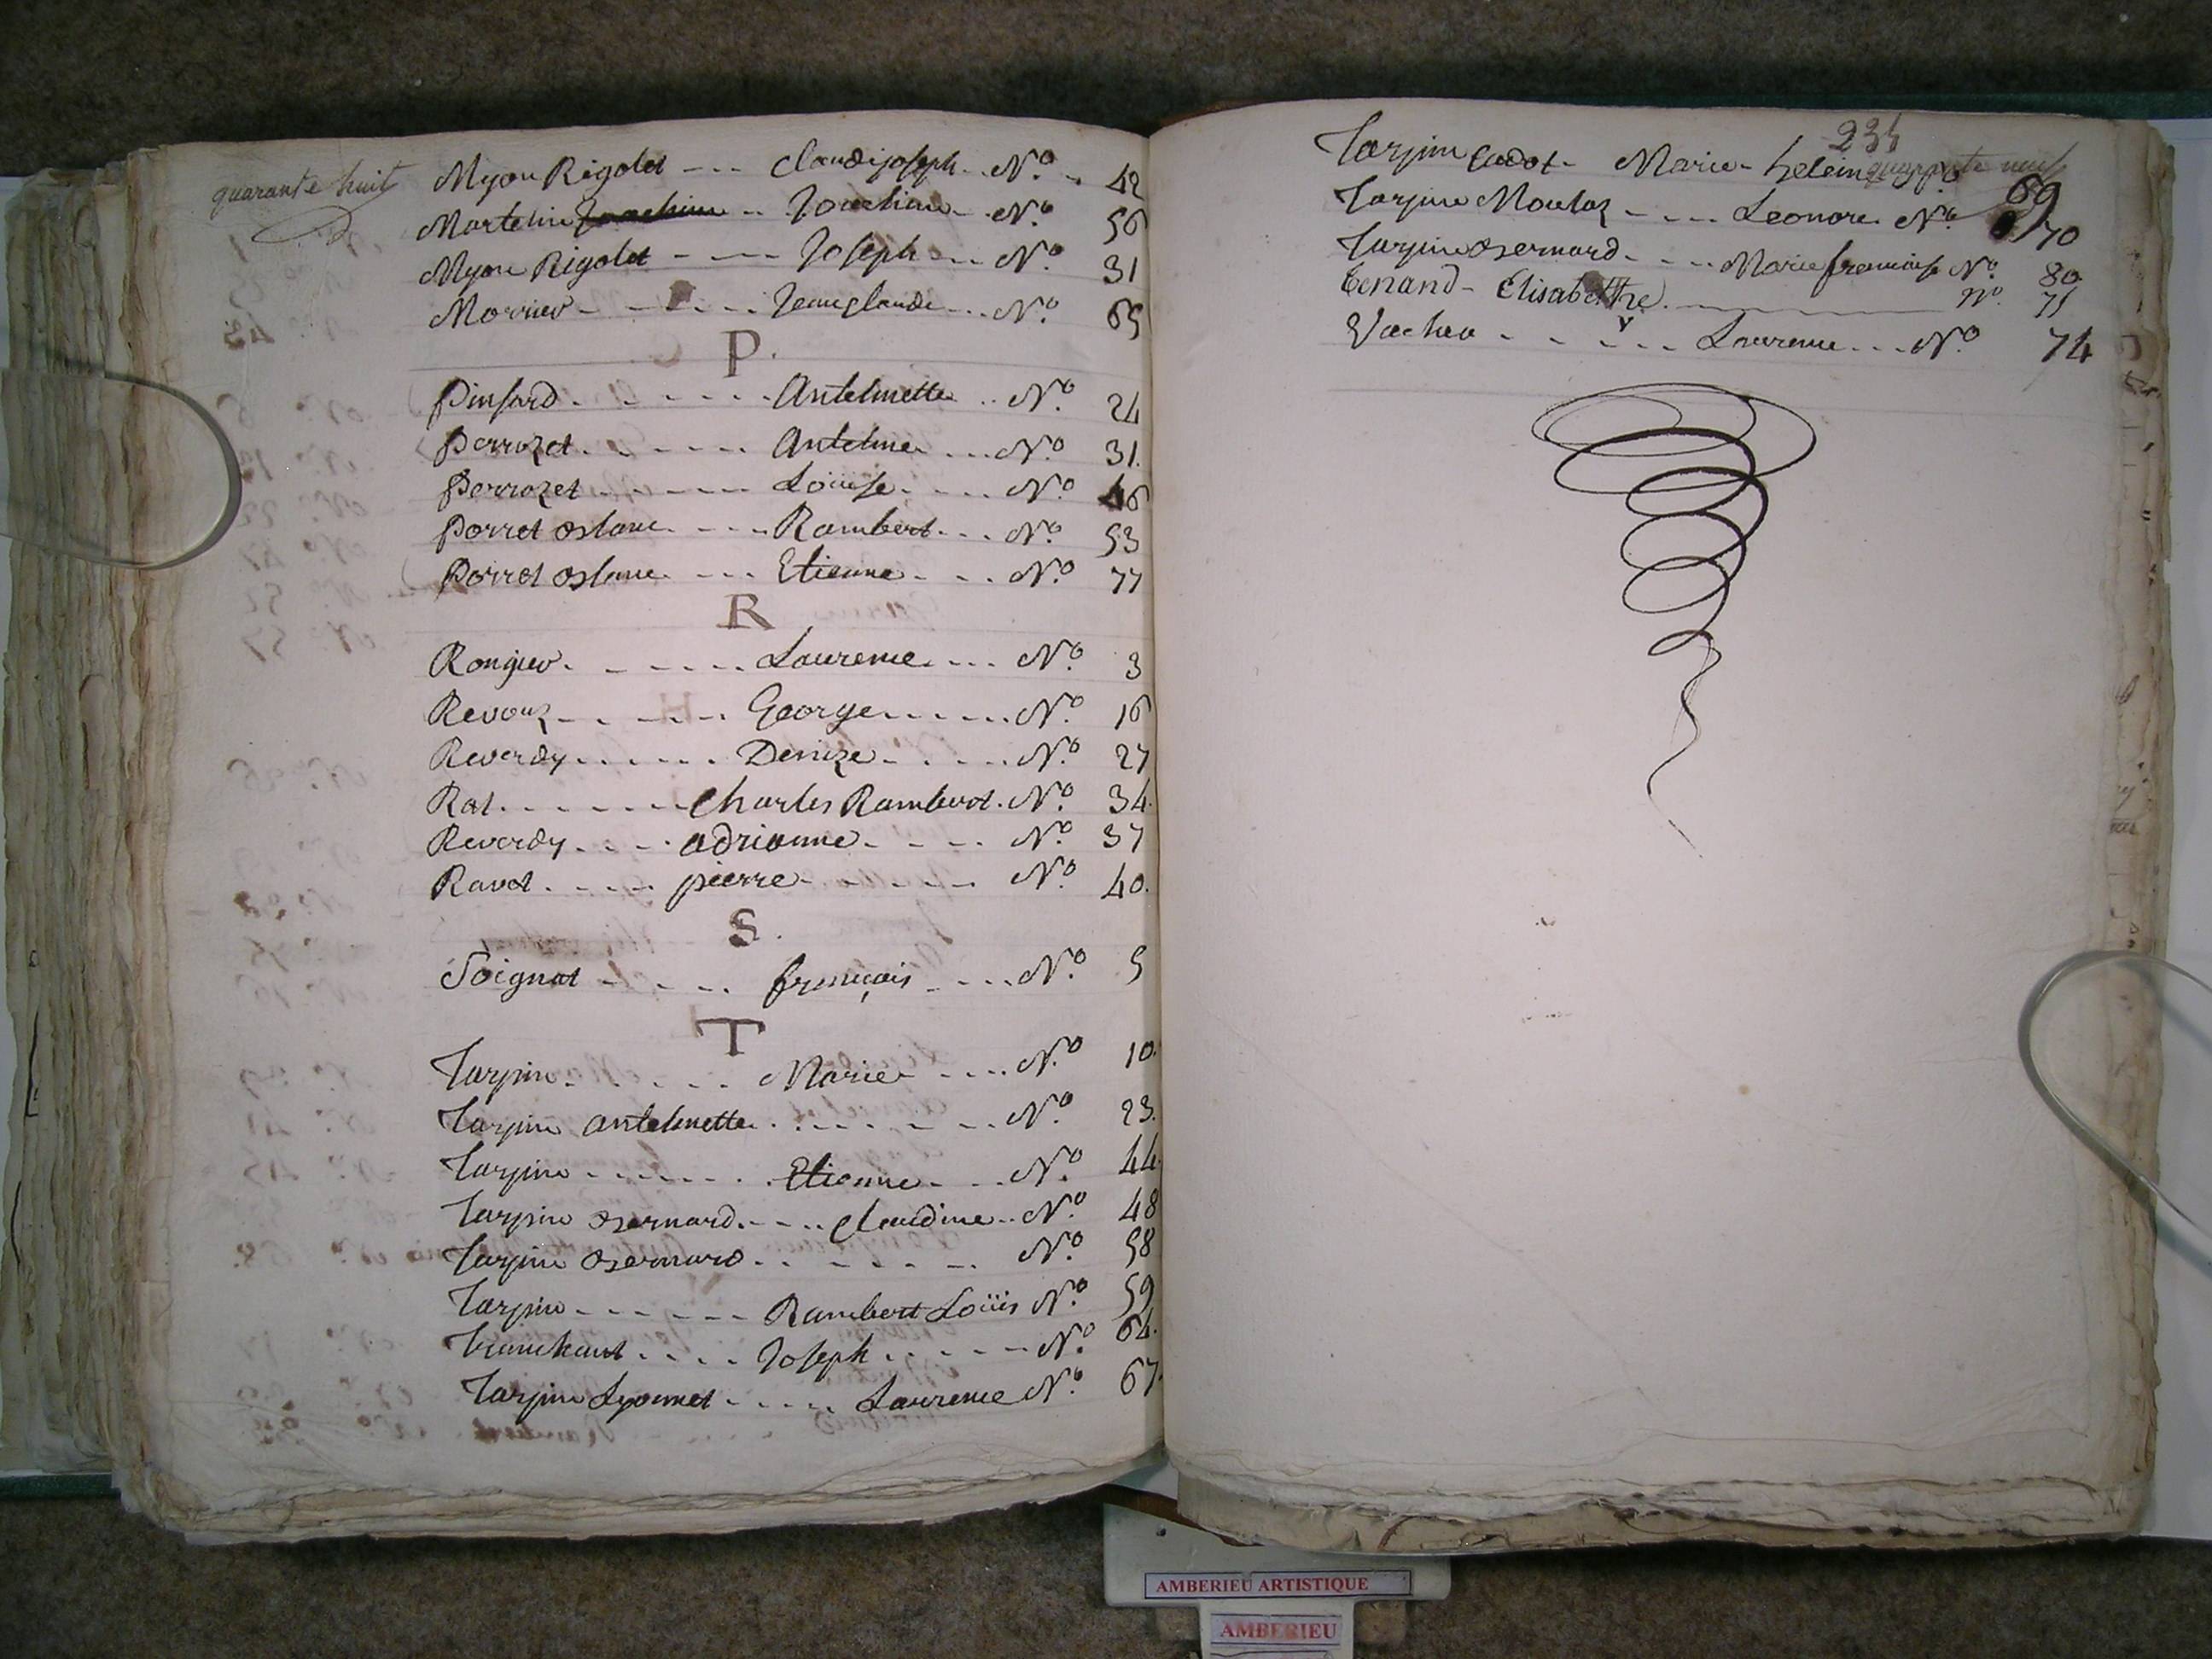 quarante huit
Myon Rigolet - - - Claudejoseph. N.º 42
Martelin Joachim - - Joachim - . N.º 56
Myon Rigolet - - - - Joseph - - N.º 31
Morrier - - - - - Jean claude - - . N.º 65
P.
Pinsard . - - - - - . Antelmette . . N.º 24
Perrozet . - - - - - Antelme . . . N.º 31.
Perrozet - - - - - - Loüise . - - . N.º 46
Porret - - - - Rambert . . . N.º 53
Porret - - - Etienne - . - . N.º 77
R
Rongier . - - - - . Laurence . . . . N.º 3
Revoux - . - - - . George . . . . . . N.º 16
Reverdy . . . . . . Denize - . - - . . N.º 27
Rat . . . - - - - Charles Rambert . N.º 34.
Reverdy . - - . adrianne . - - - N.º 37
Ravet . - - - . pierre - - - - - N.º 40.
S.
Soignat - - - - . françois - - - . . N.º 5
T
Tarpin . - . - - . . Marie - - . . . N.º 10.
Tarpin antelmette . . - - - - - . N.º 23.
Tarpin - - - - - . . Etienne - . - . . N.º 44.
Tarpin Bernard . - - . . Claudine . . N.º 48
Tarpin Bernard . . - - - - - . N.º 58
Tarpin - - - - - - - Rambert Loüis N.º 59
tranchant . . . . - Joseph . . - - - - N.º 64.
Tarpin Lyonnet - . - - - . Laurence N.º 67.
234
quarante neuf
Tarpin Cadot - Marie - helein 69
Tarpin Moulaz - - - - Leonore N.º 70
Tarpin Bernard . - - . . Marie francoise N.º 80.
tenand - Elisabetthe . n.º 71
V
Vacher - . - - - . . Laurence . . . N.º 74
AMBERIEU ARTISTIQUE
AMBERIEU